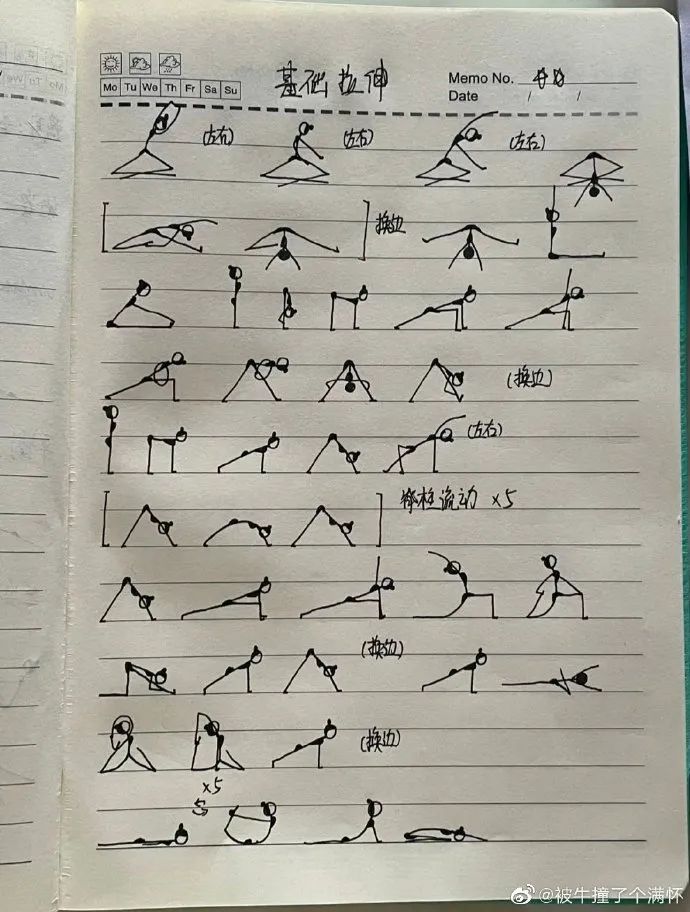 基础拉伸
Memo No.
Mo Tu We Th Fr Sa Su
Date / /
(左右) (左右) (左右)
换边
(换边)
(左右)
脊柱流动 ×5
(换边)
(换边)
×5
@被牛撞了个满怀